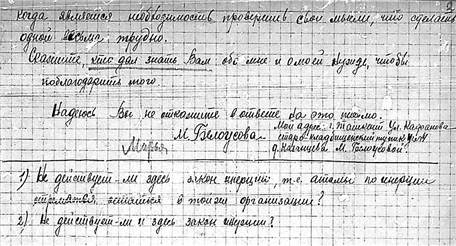 когда является необходимость проверить свои мысли, что сделать
одной весьма трудно.
Скажите, кто дал знать Вам обо мне и о моей нужде, чтобы
поблагодарить того.
Надеюсь Вы не откажите в ответе на это письмо.
М. Белоусова Мой адрес: г. Ташкент Ул.
Марья старо-кладбищенский тупик
д. М. Белоусовой
1) Не действует-ли здесь закон инерции, т.е. атомы по инерции
остаться в этой организации?
2) Не действует-ли и здесь закон инерции?